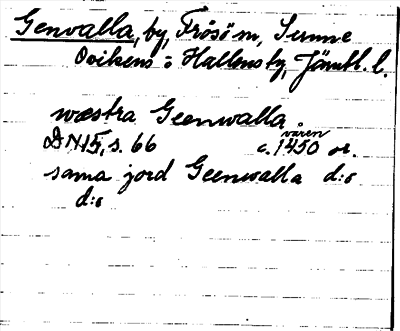 Genvalla, by, Frösö m, Sunne
Ovikens o Hallens ty, Jämtl. l.
wæstra Geenwalla
våren
DN 15, s. 66 c. 1450 or.
sama jord Geenwalla d:o
d:o